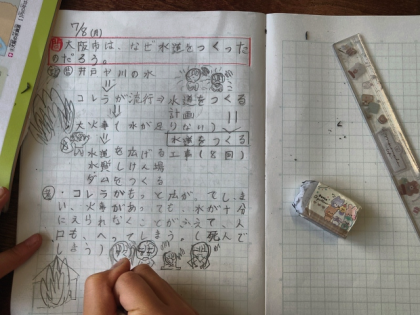 7/8(月)
問大阪市は、なぜ水道をつくった
のだろう。
井戸や川の水
コレラが流行⇒水道をつくる
計画
大火事(水が足りない)
水道をつくる
水道を広げる工事(8回)
水質しけん場
ダムをつくる
・コレラがもっと広がってしま
い、火事があっても、水が十分
にえられなくことがふえて、人
口も、へってしまう。(死んで
しまう)